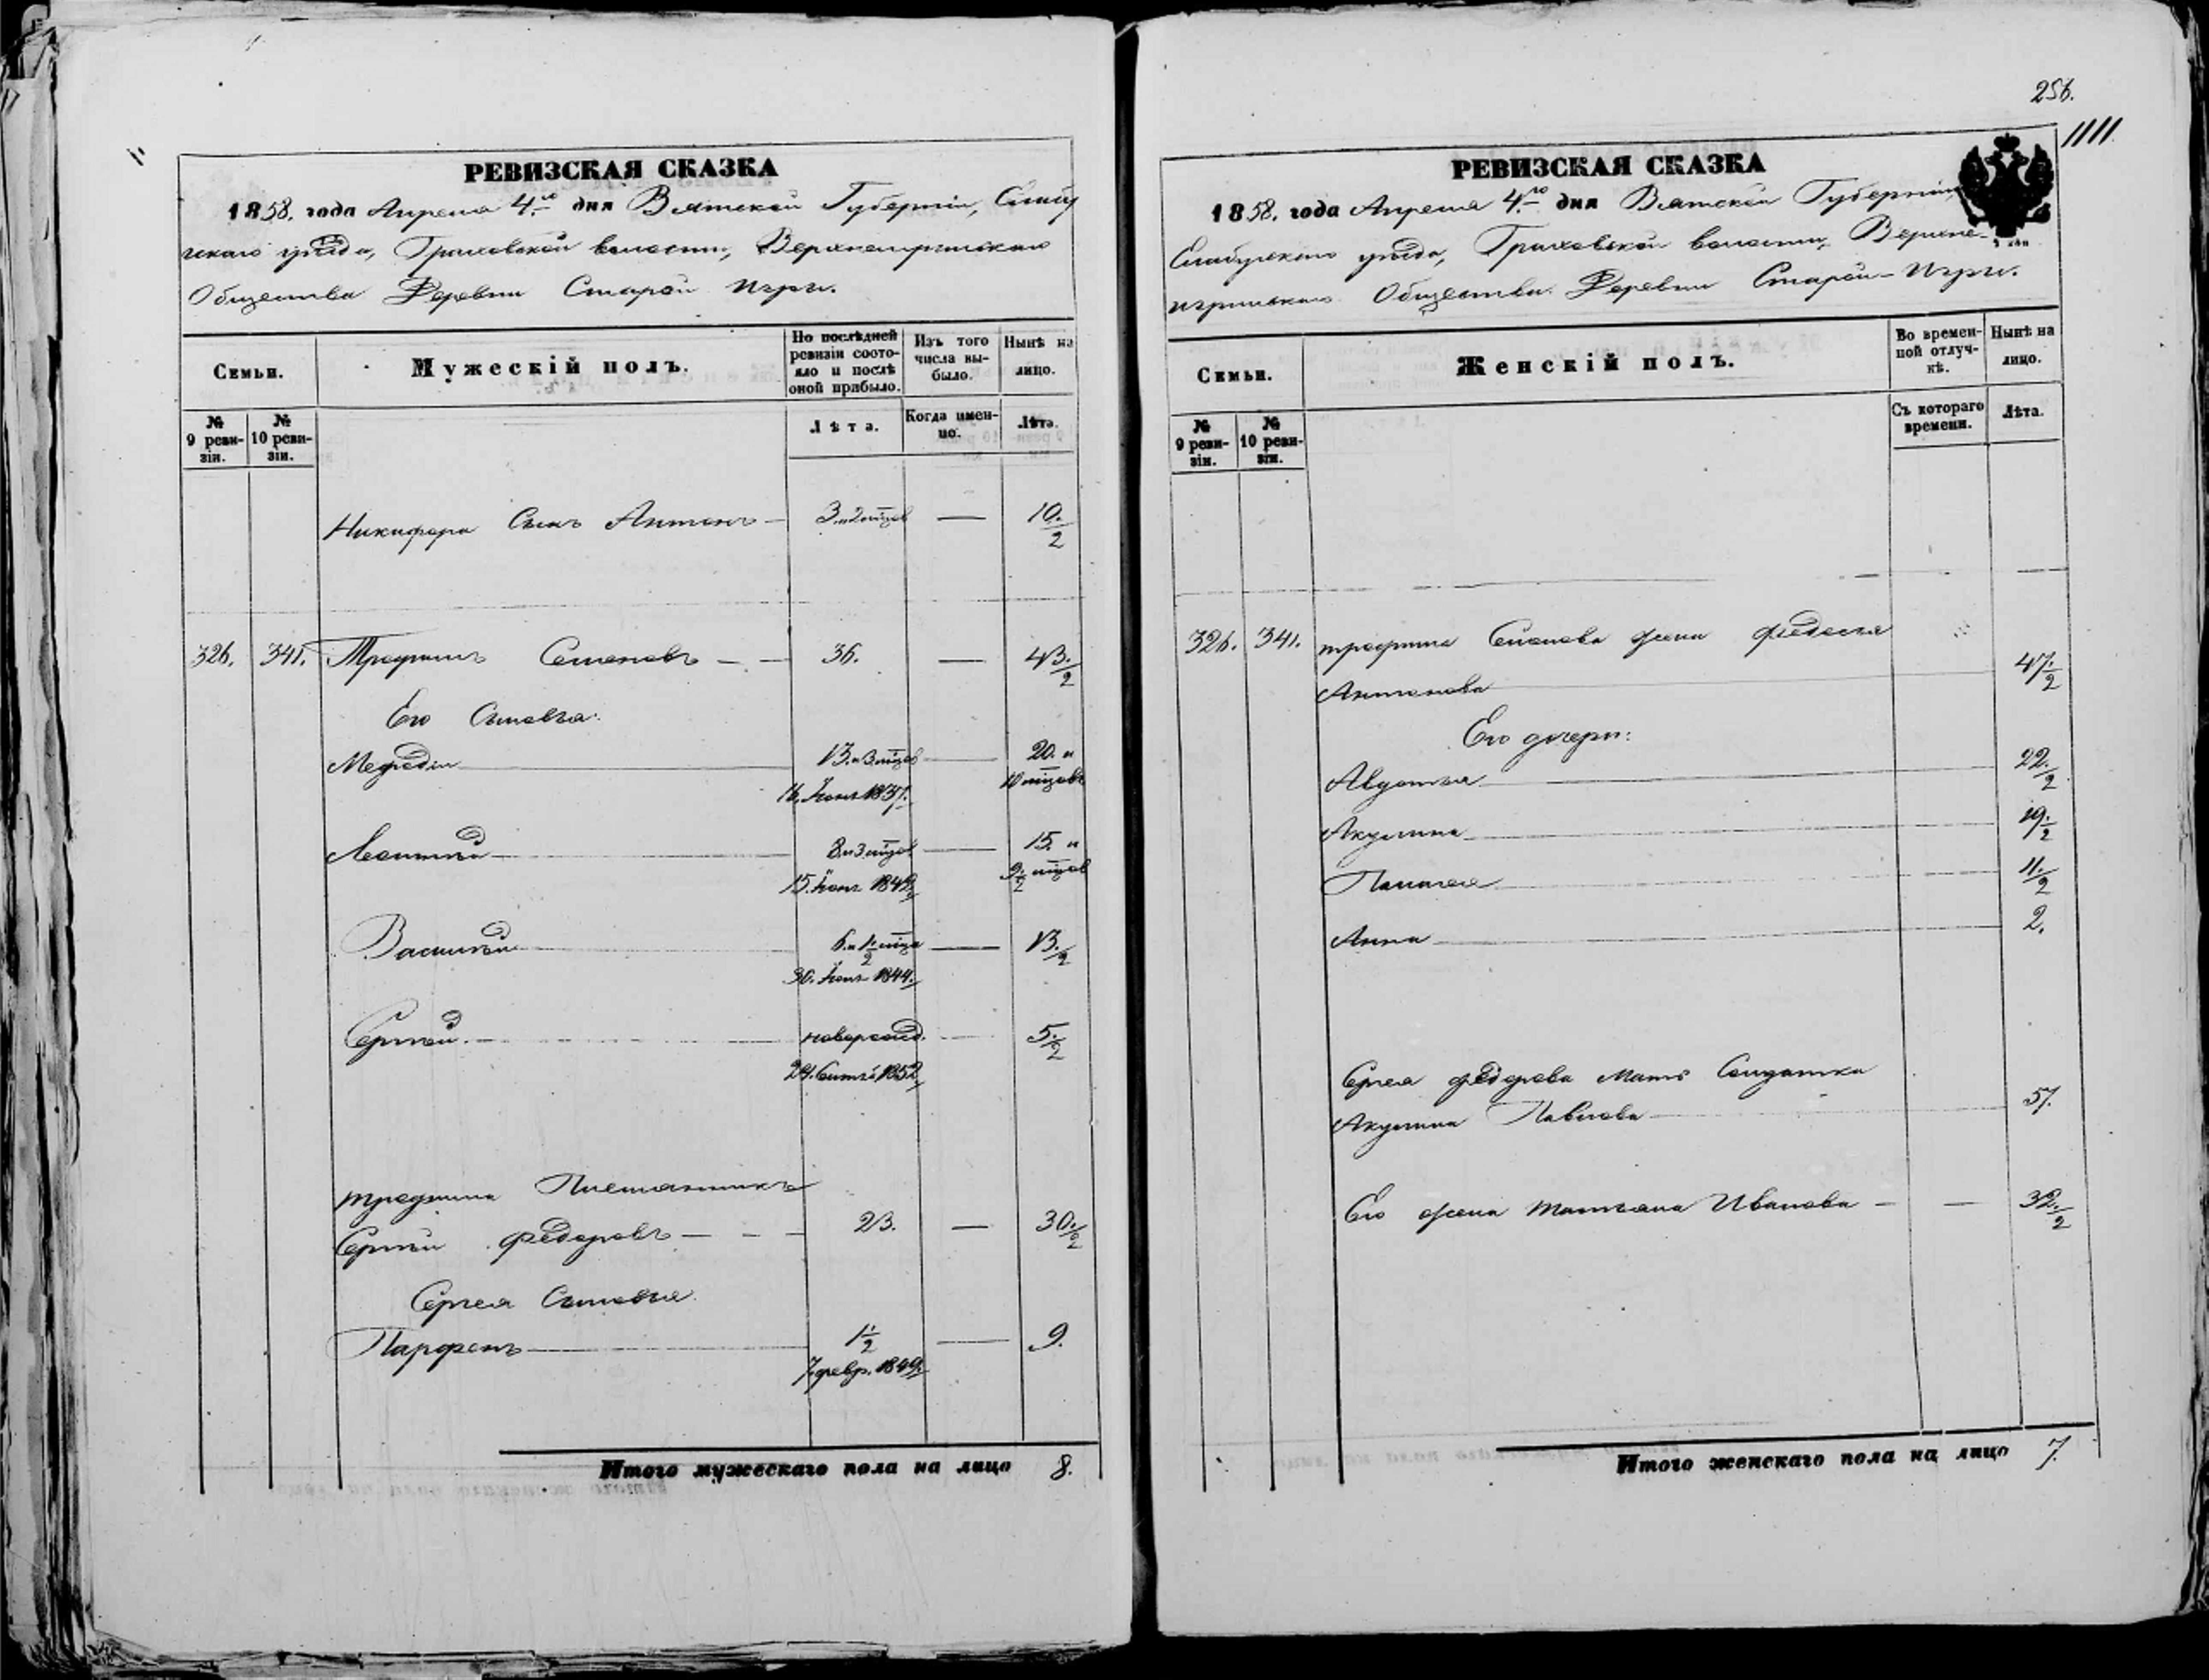 РЕВИЗСКАЯ СКАЗКА
1858. года Апреля 4.го дня Вятской Губерніи, Елабу
жскаго уѣзда, Граховской волости,
Общества Деревни Старой Игры.
Семьи.
Мужескій полъ.
По послѣдней ревизіи состояло и послѣ оной прибыло.
Изъ того числа выбыло.
Нынѣ на лицо.
№ 9 ревизіи.
№ 10 ревизіи.
Лѣта.
Когда именно.
Лѣта.
Никифора Сынъ Антонъ — 3. и 2 мѣсцов — 10. 1/2
326. 341. Трофимъ Семеновъ — 36. — 43. 1/2
Его Сыновья:
Мефодій — 13. и 3 мѣсцов — 20. и
16. Іюня 1837. 10 мѣсцовъ
Леонтій — 8. и 3 мѣсцов — 15. и
15. Іюня 1842 9 1/2 мѣсцов
Василій — 6. и 1 1/2 мѣсца — 13. 1/2
30. 1844.
Сергѣй. — новорожд. — 5. 1/2
24. Сентя 1852
трофима Племянникъ
Сергѣй федоровъ — 23. — 30. 1/2
Сергея Сыновья
Парфенъ — 1 1/2 — 9.
7 февр. 1849.
Итого мужескаго пола на лицо 8.
256.
1111
РЕВИЗСКАЯ СКАЗКА
1858. года Апреля 4.го дня Вятской Губерніи,
Елабужскаго уѣзда, Граховской волости, Верхне-
игринскаго Общества. Деревни Старой-Игры.
Семьи.
Женскій полъ.
Во временной отлучкѣ.
Нынѣ на лицо.
№ 9 ревизіи.
№ 10 ревизіи.
Съ котораго времени.
Лѣта.
326. 341. трофима Семенова жена федосья
Антонова — 47. 1/2
Его дочери:
Авдотья — 22. 1/2
Акулина — 19. 1/2
Палагея — 11. 1/2
Анна — 2.
Сергея федорова Мать Солдатка
Акулина Павлова — 57.
Его жена татьяна Иванова — — 32. 1/2
Итого женскаго пола на лицо 7.